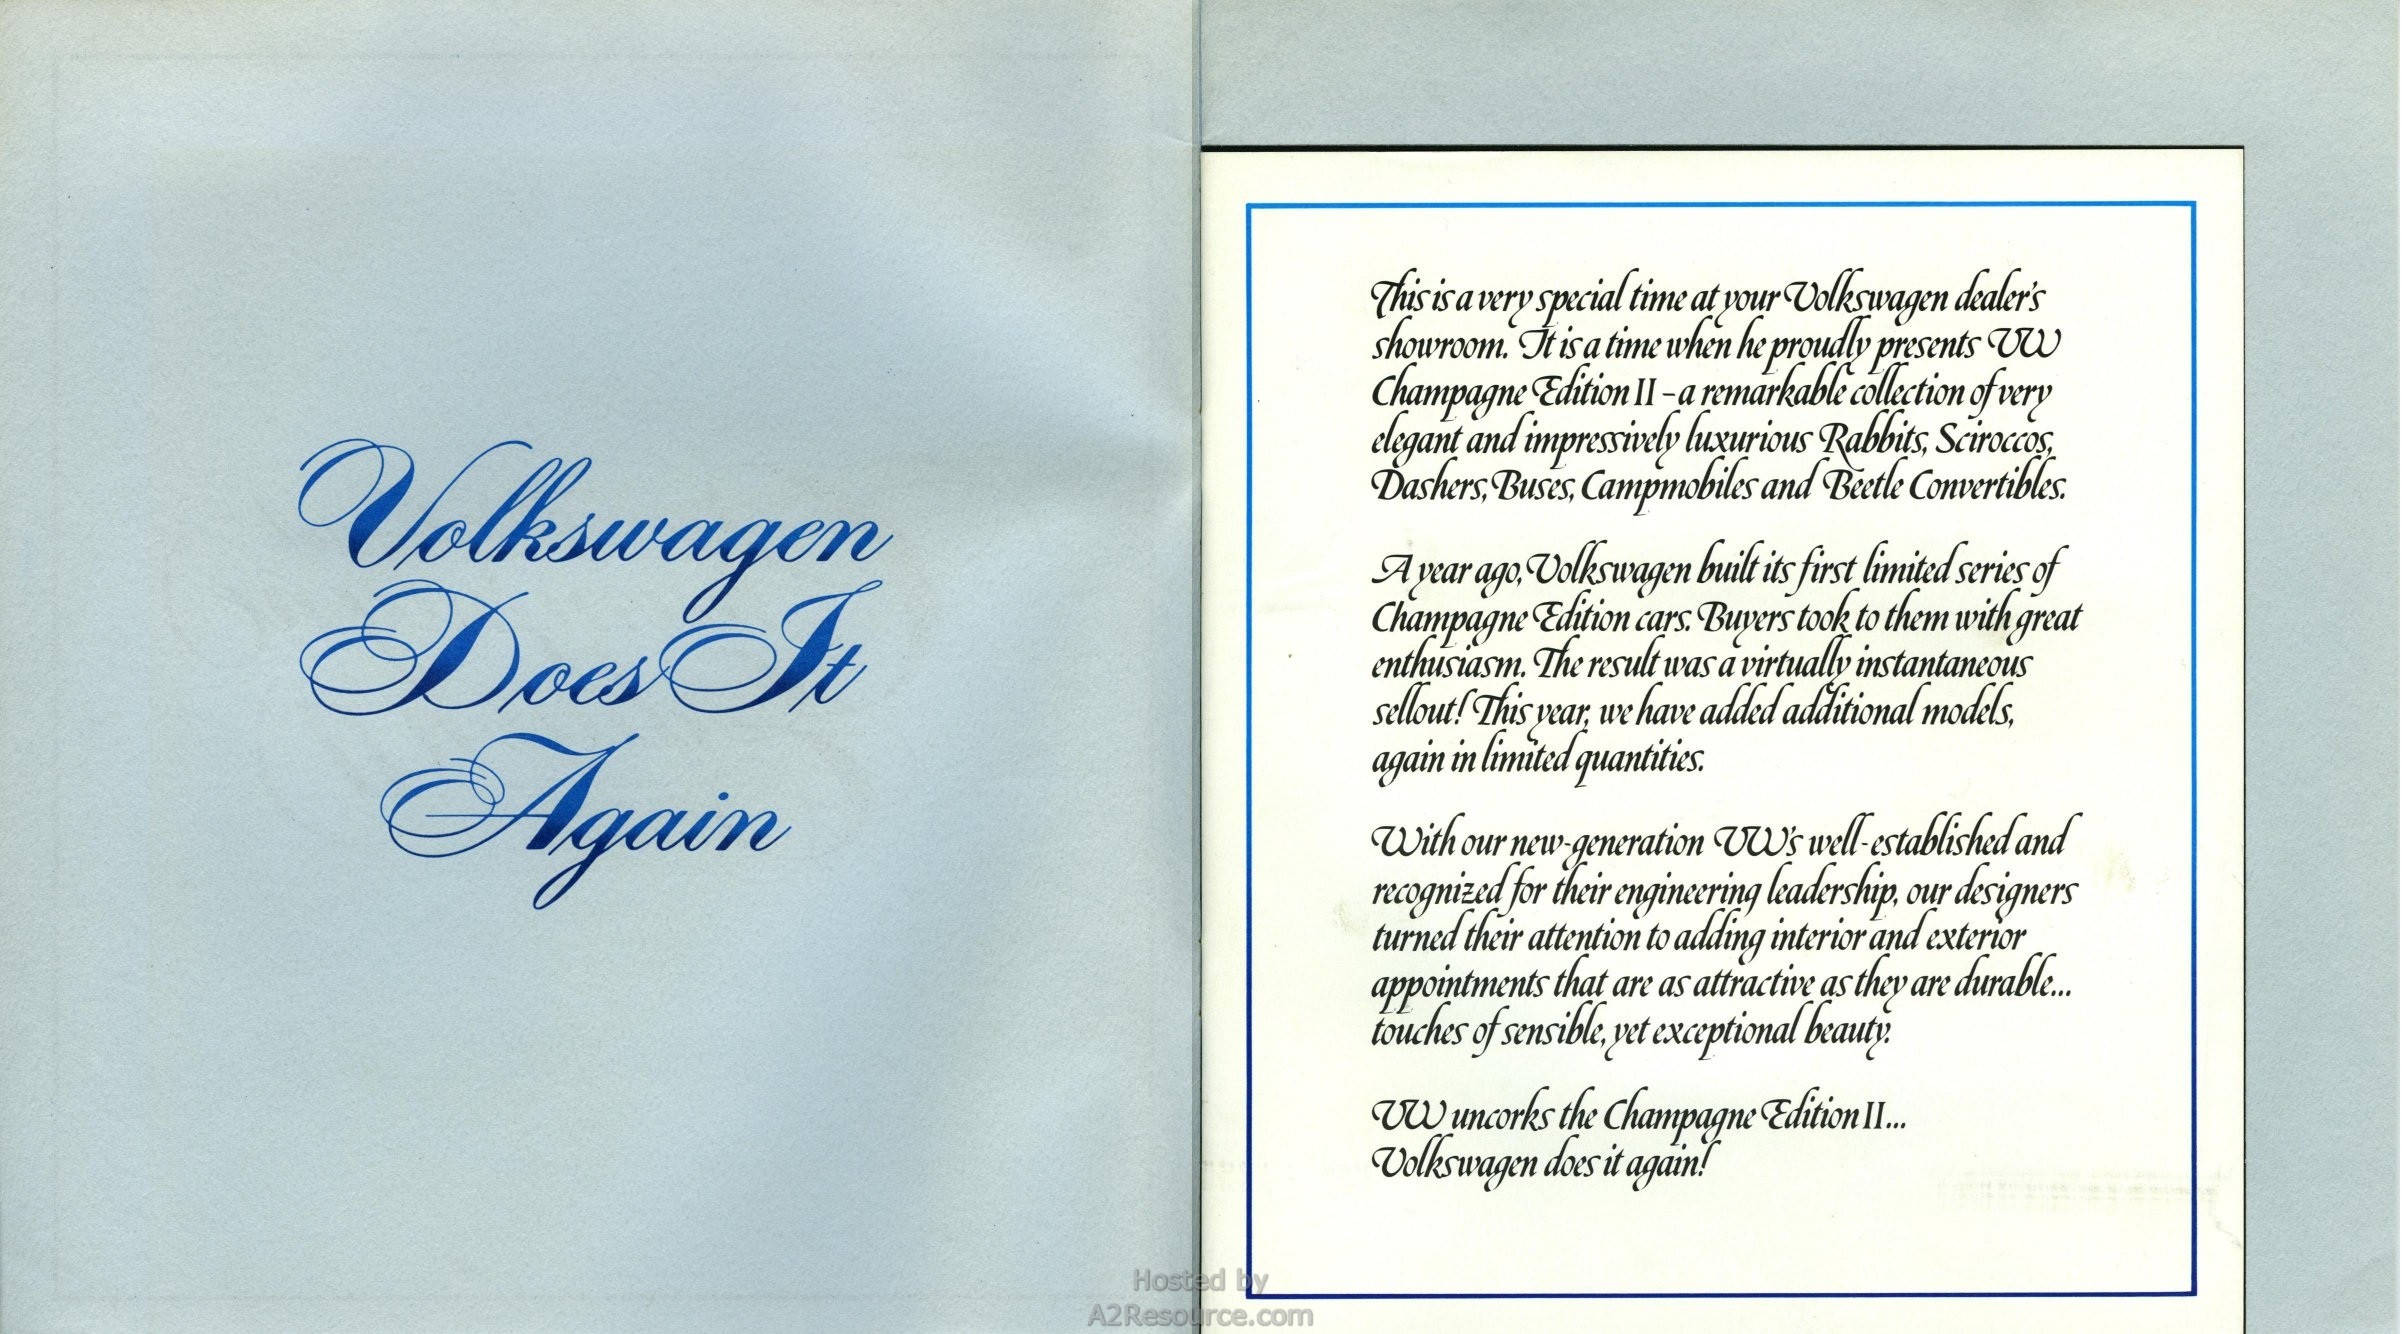 Volkswagen
Does It
Again
This is a very special time at your Volkswagen dealer's
showroom. It is a time when he proudly presents VW
Champagne Edition II – a remarkable collection of very
elegant and impressively luxurious Rabbits, Sciroccos,
Dashers, Buses, Campmobiles and Beetle Convertibles.
A year ago, Volkswagen built its first limited series of
Champagne Edition cars. Buyers took to them with great
enthusiasm. The result was a virtually instantaneous
sellout! This year, we have added additional models,
again in limited quantities.
With our new-generation VW's well-established and
recognized for their engineering leadership, our designers
turned their attention to adding interior and exterior
appointments that are as attractive as they are durable...
touches of sensible, yet exceptional beauty.
VW uncorks the Champagne Edition II...
Volkswagen does it again!
Hosted by
A2Resource.com